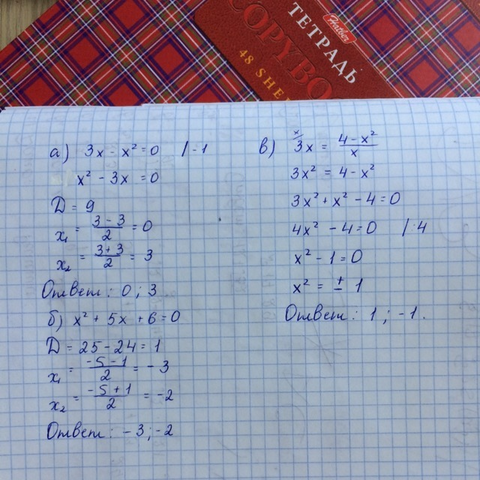 Hatber
ТЕТРАДЬ
COPYBO
48 SHE
а) 3x - x² = 0 /·-1
x² - 3x = 0
D = 9
x₁ = (3-3)/2 = 0
x₂ = (3+3)/2 = 3
Ответ: 0; 3
б) x² + 5x + 6 = 0
D = 25 - 24 = 1
x₁ = (-5-1)/2 = -3
x₂ = (-5+1)/2 = -2
Ответ: -3; -2
в) ˣ⁄3x = (4-x²)/x
3x² = 4 - x²
3x² + x² - 4 = 0
4x² - 4 = 0 /:4
x² - 1 = 0
x² = ± 1
Ответ: 1; -1.